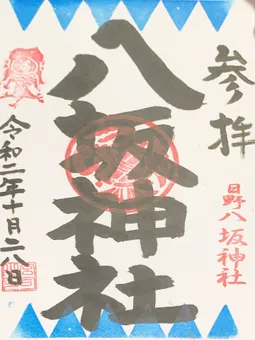 参拝
八坂神社
日野八坂神社
令和二年十月二八日